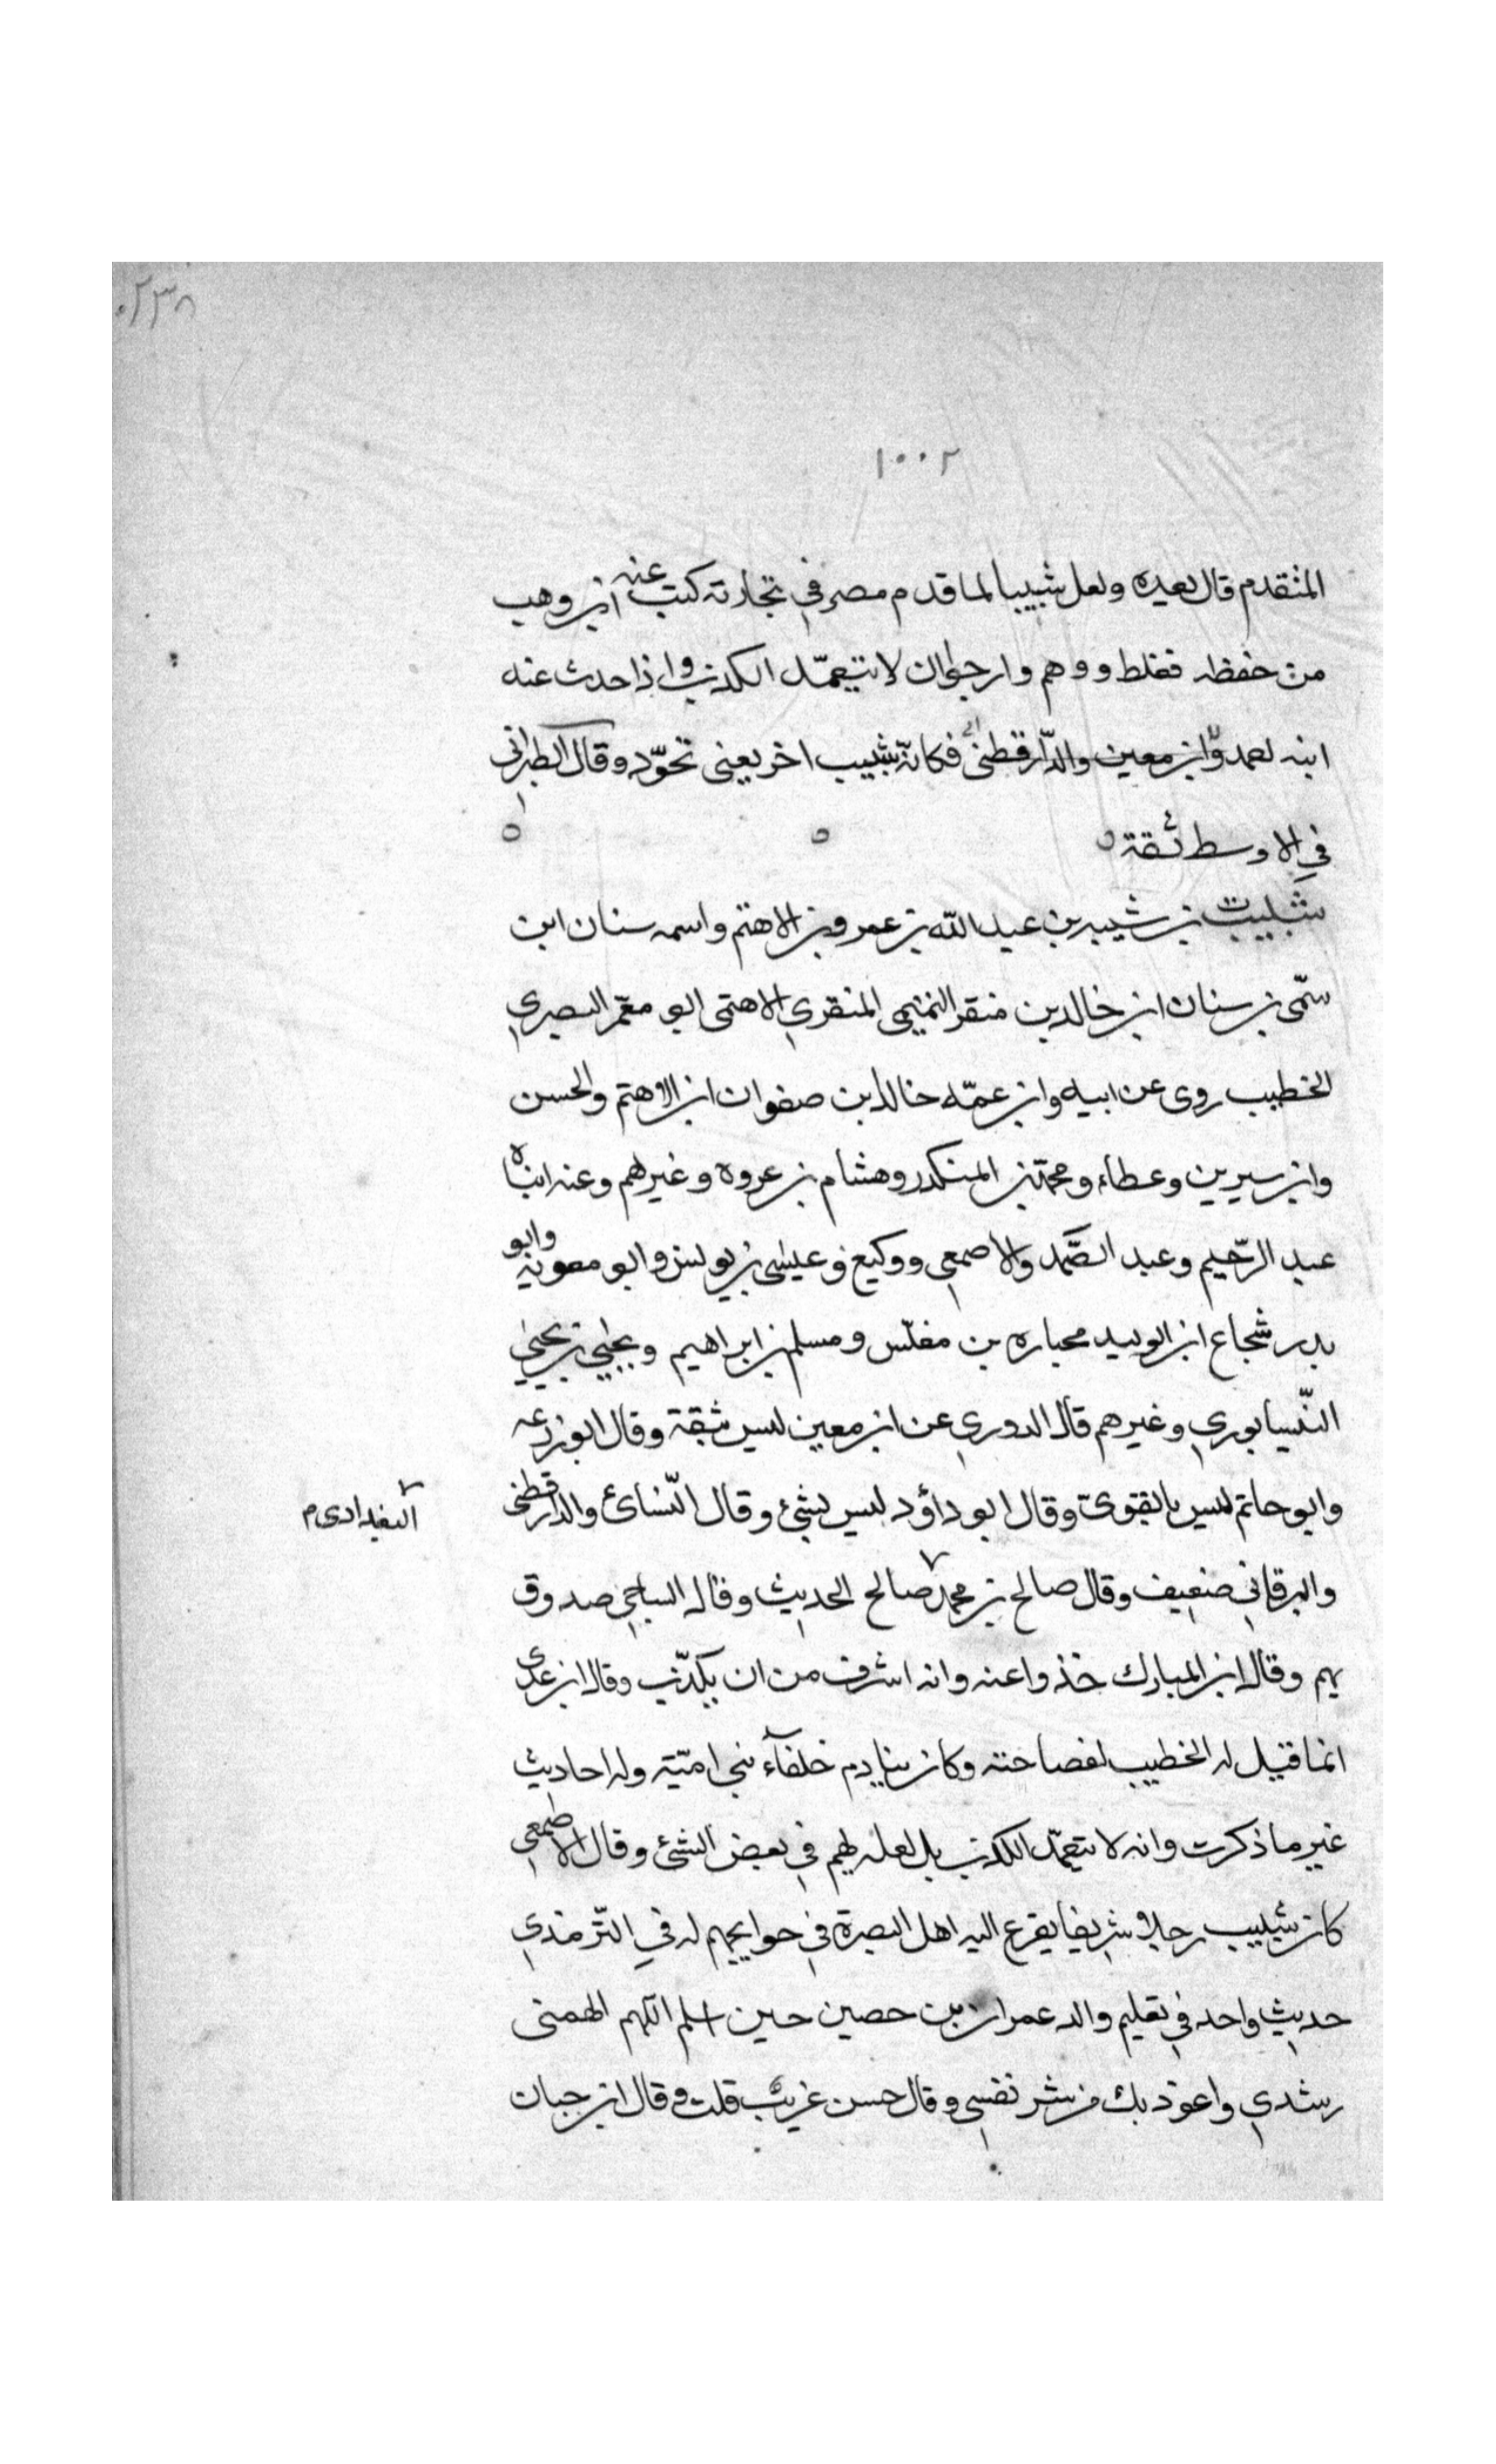 ٠٢٣٨
١٠٠٢
المتقدم قال بعيده ولعل شبيبا لما قدم مصر في تجارته كتب عنه ابن وهب
من حفظه فغلط ووهم وارجو ان لا يتعمّد الكذب واذا حدث عنه
ابنه فكانّه شبيب اخر يعنى تجوّد وقال الطبرانى
في الاوسط ثقة
شبيب بن شيبه بن عبد الله بن عمرو بن الاهتم واسمه سنان ابن
سمّى بن سنان ابن خالد بن منقر التميمى المنقري الاهتمى ابو معمّر البصري
الخطيب روى عن ابيه وابن عمّه خالد بن صفوان ابن الاهتم والحسن
وابن سيرين وعطاء ومحمّد بن المنكدر وهشام بن عروه وغيرهم وعنه ابناه
عبد الرّحيم وعبد الصّمد والاصمعي ووكيع وعيسى بن يونس وابو معويه وابو
بدر شجاع ابن الوليد مجباره بن مغلّس ومسلم بن ابراهيم ويحيي بن يحيي
النّيسابوري وغيرهم قال الدوري عن ابن معين ليس بثقة وقال ابو زرعه
وابو حاتم ليس بالقوىّ وقال ابو داؤد ليس بشئ وقال النّسائ والدارقطنى
البغدادى م
والبرقاني ضعيف وقال صالح بن محمد صالح الحديث وقال الساجي صدوق
يهم وقال ابن المبارك خذوا عنه وانه اشرف من ان يكذّب وقال ابن عدى
انما قيل له الخطيب لفصاحته وكان ينادم خلفآء بنى اميّة وله احاديث
غير ما ذكرت وانه لا يتعمّد الكذب بل لعله يهم في بعض الشئ وقال الاصمعي
كان شبيب رجلا شريفا يفزع اليه اهل البصرة في حوايجهم له في التّرمذي
حديث واحد في تعليم والد عمران بن حصين حين اسلم اللهم الهمنى
رشدي واعوذ بك من شر نفسي وقال حسن غريب قلت وقال ابن حبان